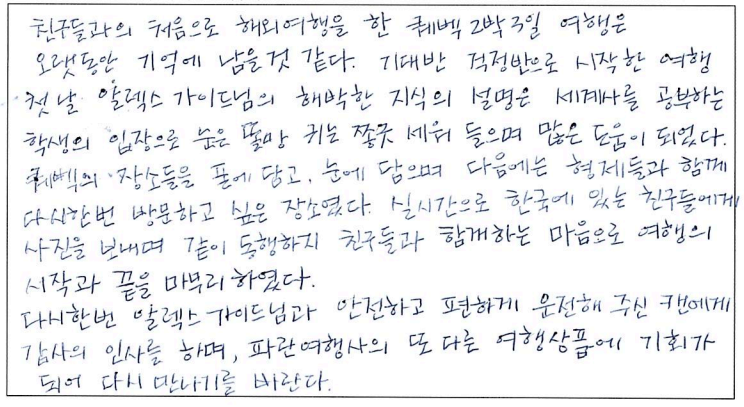 친구들과의 처음으로 해외여행을 한 퀘벡 2박3일 여행은
오랫동안 기억에 남을것 같다. 기대반 걱정반으로 시작한 여행
첫날 알렉스 가이드님의 해박한 지식의 설명은 세계사를 공부하는
학생의 입장으로 눈은 똘망 귀는 쫑긋 세워 들으며 많은 도움이 되었다.
퀘벡의 장소들을 폰에 담고, 눈에 담으며 다음에는 형제들과 함께
다시한번 방문하고 싶은 장소였다. 실시간으로 한국에 있는 친구들에게
사진을 보내며 같이 동행하지 친구들과 함께하는 마음으로 여행의
시작과 끝을 마무리 하였다.
다시한번 알렉스 가이드님과 안전하고 편하게 운전해 주신 캔에게
감사의 인사를 하며, 파란여행사의 또 다른 여행상품에 기회가
되어 다시 만나기를 바란다.